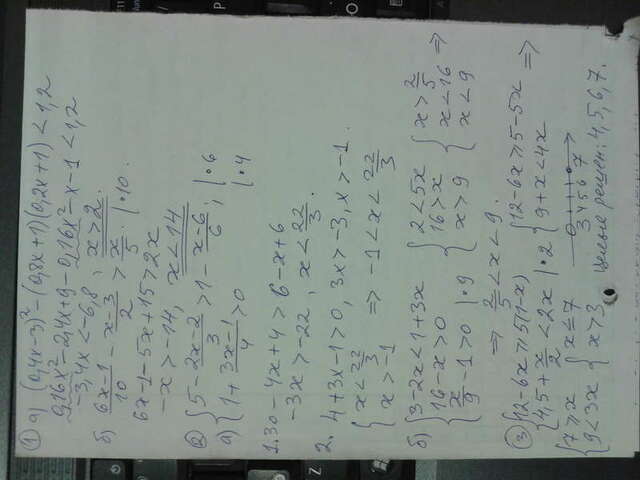 ① а) (0,4x-3)² - (0,8x+1)(0,2x+1) < 1,2
0,16x² - 2,4x + 9 - 0,16x² - x - 1 < 1,2
-3,4x < -6,8, x > 2.
б) (6x-1)/10 - (x-3)/2 > x/5 . | · 10.
6x - 1 - 5x + 15 > 2x
-x > -14, x < 14
② а) { 5 - (2x-2)/3 > 1 - (x-6)/6 ; | · 6
{ 1 + (3x-1)/4 > 0 | · 4
1. 30 - 4x + 4 > 6 - x + 6
-3x > -22, x < 22/3.
2. 4 + 3x - 1 > 0, 3x > -3, x > -1.
{ x < 22/3
{ x > -1 => -1 < x < 22/3
б) { 3 - 2x < 1 + 3x { 2 < 5x { x > 2/5
{ 16 - x > 0 { 16 > x { x < 16 =>
{ x/9 - 1 > 0 | · 9 { x > 9 { x < 9
=> 2/5 < x < 9.
③ { 12 - 6x ⩾ 5(1-x) { 12 - 6x ⩾ 5 - 5x =>
{ 4,5 + x/2 < 2x | · 2 { 9 + x < 4x
{ 7 ⩾ x { x ⩽ 7
{ 9 < 3x { x > 3
3 4 5 6 7
целые решен: 4, 5, 6, 7.